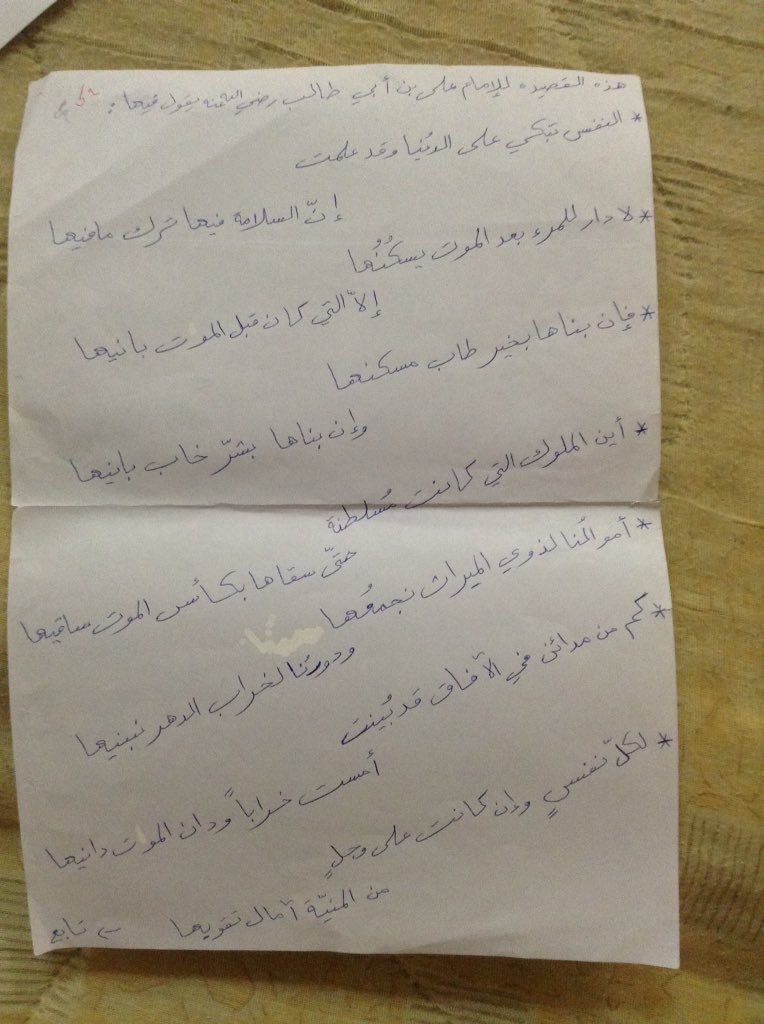 هذه القصيده للإمام علي بن أبي طالب رضي الله عنه يقول فيها :
* النفس تبكي على الدُنيا وقد علمت
إنّ السلامة فيها ترك مافيها
* لا دار للمرء بعد الموت يسكُنُها
إلاّ التي كان قبل الموت بانيها
* فإن بناها بخير طاب مسكنها
وإن بناها بشرّ خاب بانيها
* أين الملوك التي كانت مُسلطنة
حتّى سقاها بكأس الموت ساقيها
* أموالُنا لذوي الميراث نجمعُها
ودورُنا لخراب الدهر نبنيها
* كم من مدائن في الآفاق قد بُينت
أمست خراباً ودان الموت دانيها
* لكلّ نفسٍ وإن كانت على وجلٍ
من المنيّة آمال تقويها
تابع